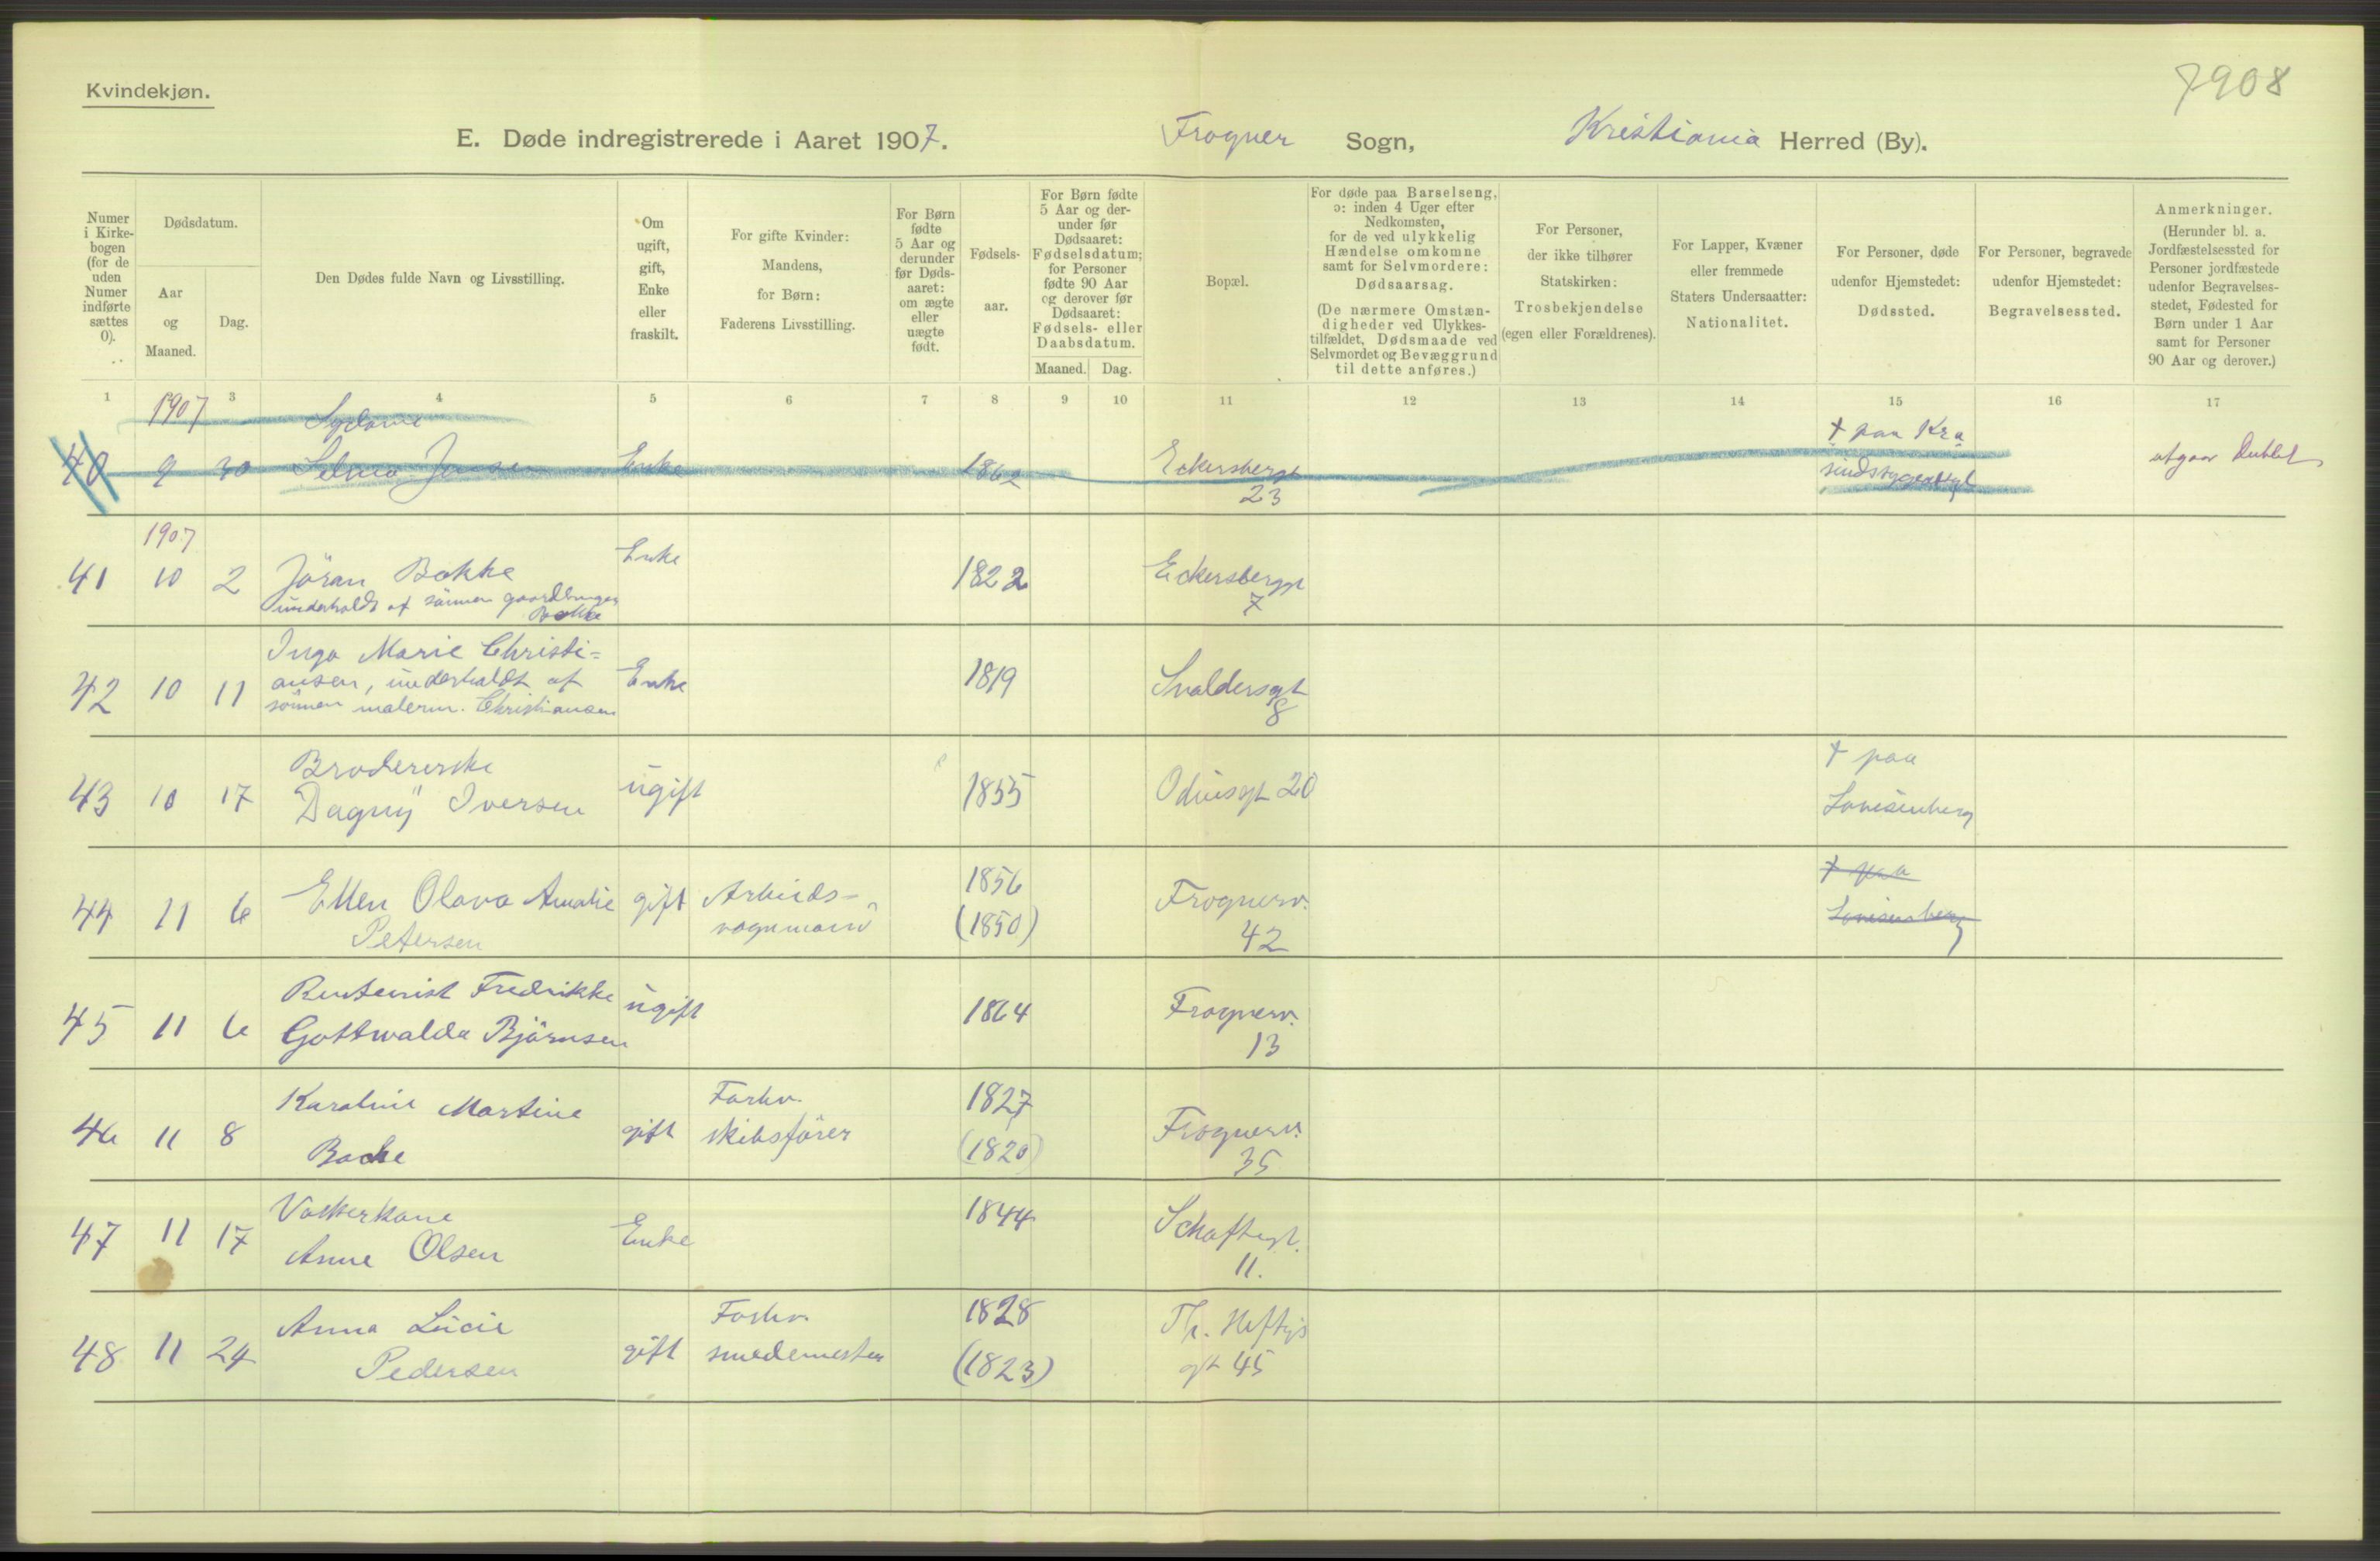 Kvindekjøn.
7908
E. Døde indregistrerede i Aaret 1907. Frogner Sogn, Kristiania Herred (By).
Numer i Kirkebogen (for de uden Numer indførte sættes 0).
Dødsdatum.
Aar og Maaned.
Dag.
Den Dødes fulde Navn og Livsstilling.
Om ugift, gift, Enke eller fraskilt.
For gifte Kvinder: Mandens, for Børn: Faderens Livsstilling.
For Børn fødte 5 Aar og derunder før Dødsaaret: om ægte eller uægte født.
Fødselsaar.
For Børn fødte 5 Aar og derunder før Dødsaaret: Fødselsdatum; for Personer fødte 90 Aar og derover før Dødsaaret: Fødsels- eller Daabsdatum.
Maaned. Dag.
Bopæl.
For døde paa Barselseng, ɔ: inden 4 Uger efter Nedkomsten, for de ved ulykkelig Hændelse omkomne samt for Selvmordere: Dødsaarsag.
(De nærmere Omstændigheder ved Ulykkestilfældet, Dødsmaade ved Selvmordet og Bevæggrund til dette anføres.)
For Personer, der ikke tilhører Statskirken: Trosbekjendelse (egen eller Forældrenes).
For Lapper, Kvæner eller fremmede Staters Undersaatter: Nationalitet.
For Personer, døde udenfor Hjemstedet: Dødssted.
For Personer, begravede udenfor Hjemstedet: Begravelsessted.
Anmerkninger. (Herunder bl. a. Jordfæstelsessted for Personer jordfæstede udenfor Begravelsesstedet, Fødested for Børn under 1 Aar samt for Personer 90 Aar og derover.)
1 3 4 5 6 7 8 9 10 11 12 13 14 15 16 17
1907
† paa Kra
40 9 30 Selma Jensen Enke 1862 Eckersbergt sindssygeasyl utgaar Dublet
23
1907
41 10 2 Jöran Bakke Enke 1822 Eckersberggt
underholdt af sönnen gaardbruger 7
Bakke
Inga Marie Christi=
42 10 11 ansen, underholdt af Enke 1819 Svoldersgt
sönnen malerm. Christiansen 8
Brodererske † paa
43 10 17 Dagny Iversen ugift 1855 Odinsgt 20 Lovisenberg
44 11 6 Ellen Olava Amalie gift Arbeids- 1856 Frognerv. † paa
Petersen vognmand (1850) 42 Lovisenberg
45 11 6 Rentenist Fredrikke ugift 1864 Frognerv.
Gottwalda Björnsen 13
Karoline Martine Forhv. 1827
46 11 8 Backe gift skibsförer (1820) Frognerv.
35
Vaskerkone
47 11 17 Anne Olsen Enke 1844 Schaftegt.
11.
Anna Lucie Forhv. 1828 Th. Heftys
48 11 24 Pedersen gift smedemester (1823) gt 45